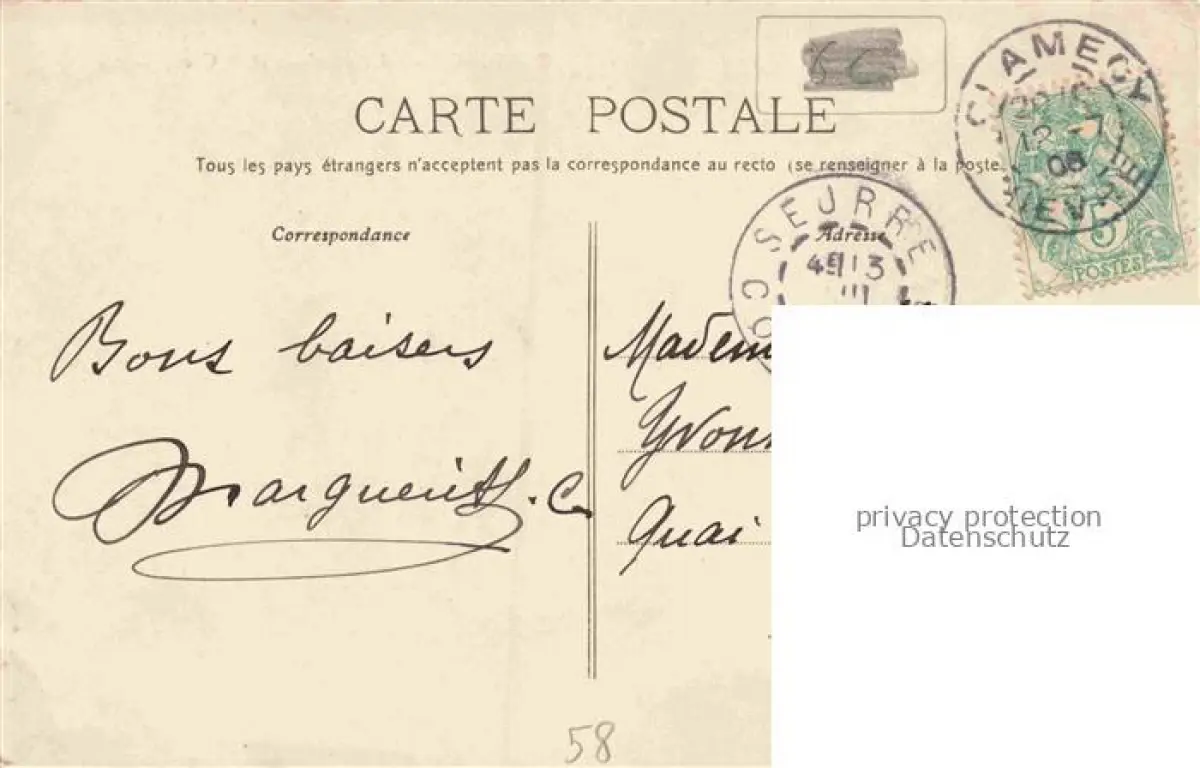 CARTE POSTALE
Tous les pays étrangers n'acceptent pas la correspondance au recto (se renseigner à la poste.
Correspondance
Adresse
CLAMECY
12 -7
08
NIEVRE
5
POSTES
SEURRE
4E 13
Bons baisers
Marguerite. C.
Madem
Yvonn
Quai
privacy protection
Datenschutz
58